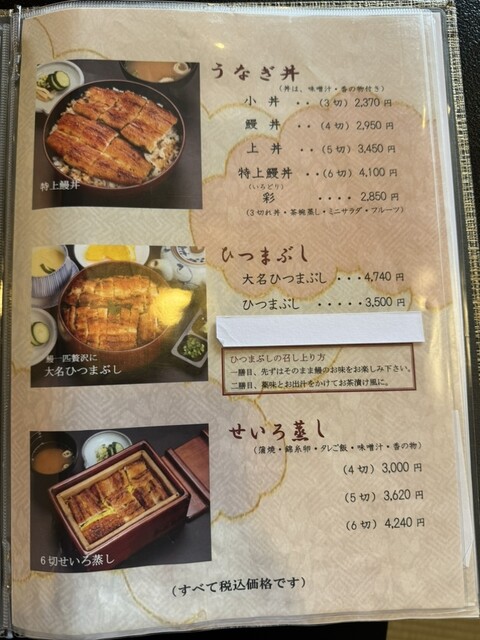 うなぎ丼
(丼は、味噌汁・香の物付き)
小丼 ・・(3切)2,370円
鰻丼 ・・(4切)2,950円
上丼 ・・(5切)3,450円
特上鰻丼 ・・(6切)4,100円
(いろどり)
彩 ・・・・2,850円
(3切れ丼・茶椀蒸し・ミニサラダ・フルーツ)
特上鰻丼
ひつまぶし
大名ひつまぶし ・・・4,740円
ひつまぶし ・・・・・3,500円
鰻一匹贅沢に
大名ひつまぶし
ひつまぶしの召し上り方
一膳目、先ずはそのまま鰻のお味をお楽しみ下さい。
二膳目、薬味とお出汁をかけてお茶漬け風に。
せいろ蒸し
(蒲焼・錦糸卵・タレご飯・味噌汁・香の物)
(4切)3,000円
(5切)3,620円
(6切)4,240円
6切せいろ蒸し
(すべて税込価格です)